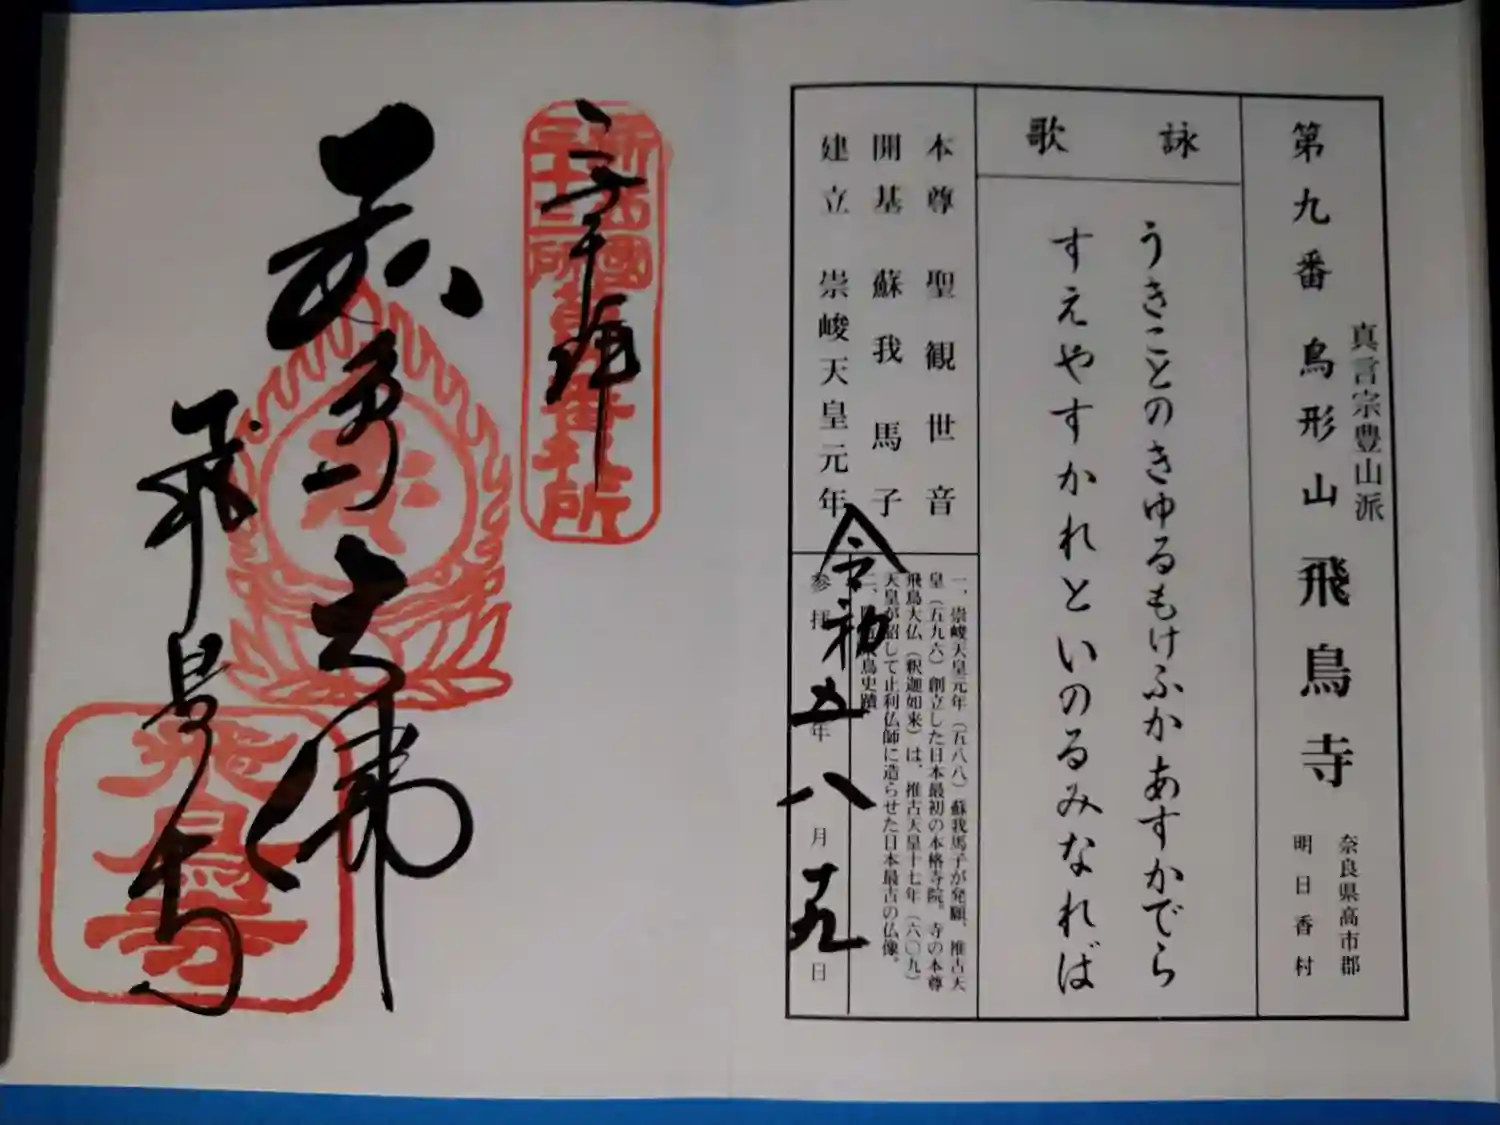 第九番 鳥形山 飛鳥寺
真言宗豊山派
奈良県高市郡
明日香村
詠歌
うきことのきゆるもけふかあすかでら
すえやすかれといのるみなれば
本尊 聖観世音
開基 蘇我馬子
建立 崇峻天皇元年
一、崇峻天皇元年（五八八）蘇我馬子が発願、推古天
皇（五九六）創立した日本最初の本格寺院。寺の本尊
飛鳥大仏（釈迦如来）は、推古天皇十七年（六〇九）
天皇が詔して止利仏師に造らせた日本最古の仏像。
二、飛鳥史蹟
参拝 令和五年八月十九日
奉拝
新西國
三十三所
第九番札所
飛鳥大佛
飛鳥寺
飛鳥寺